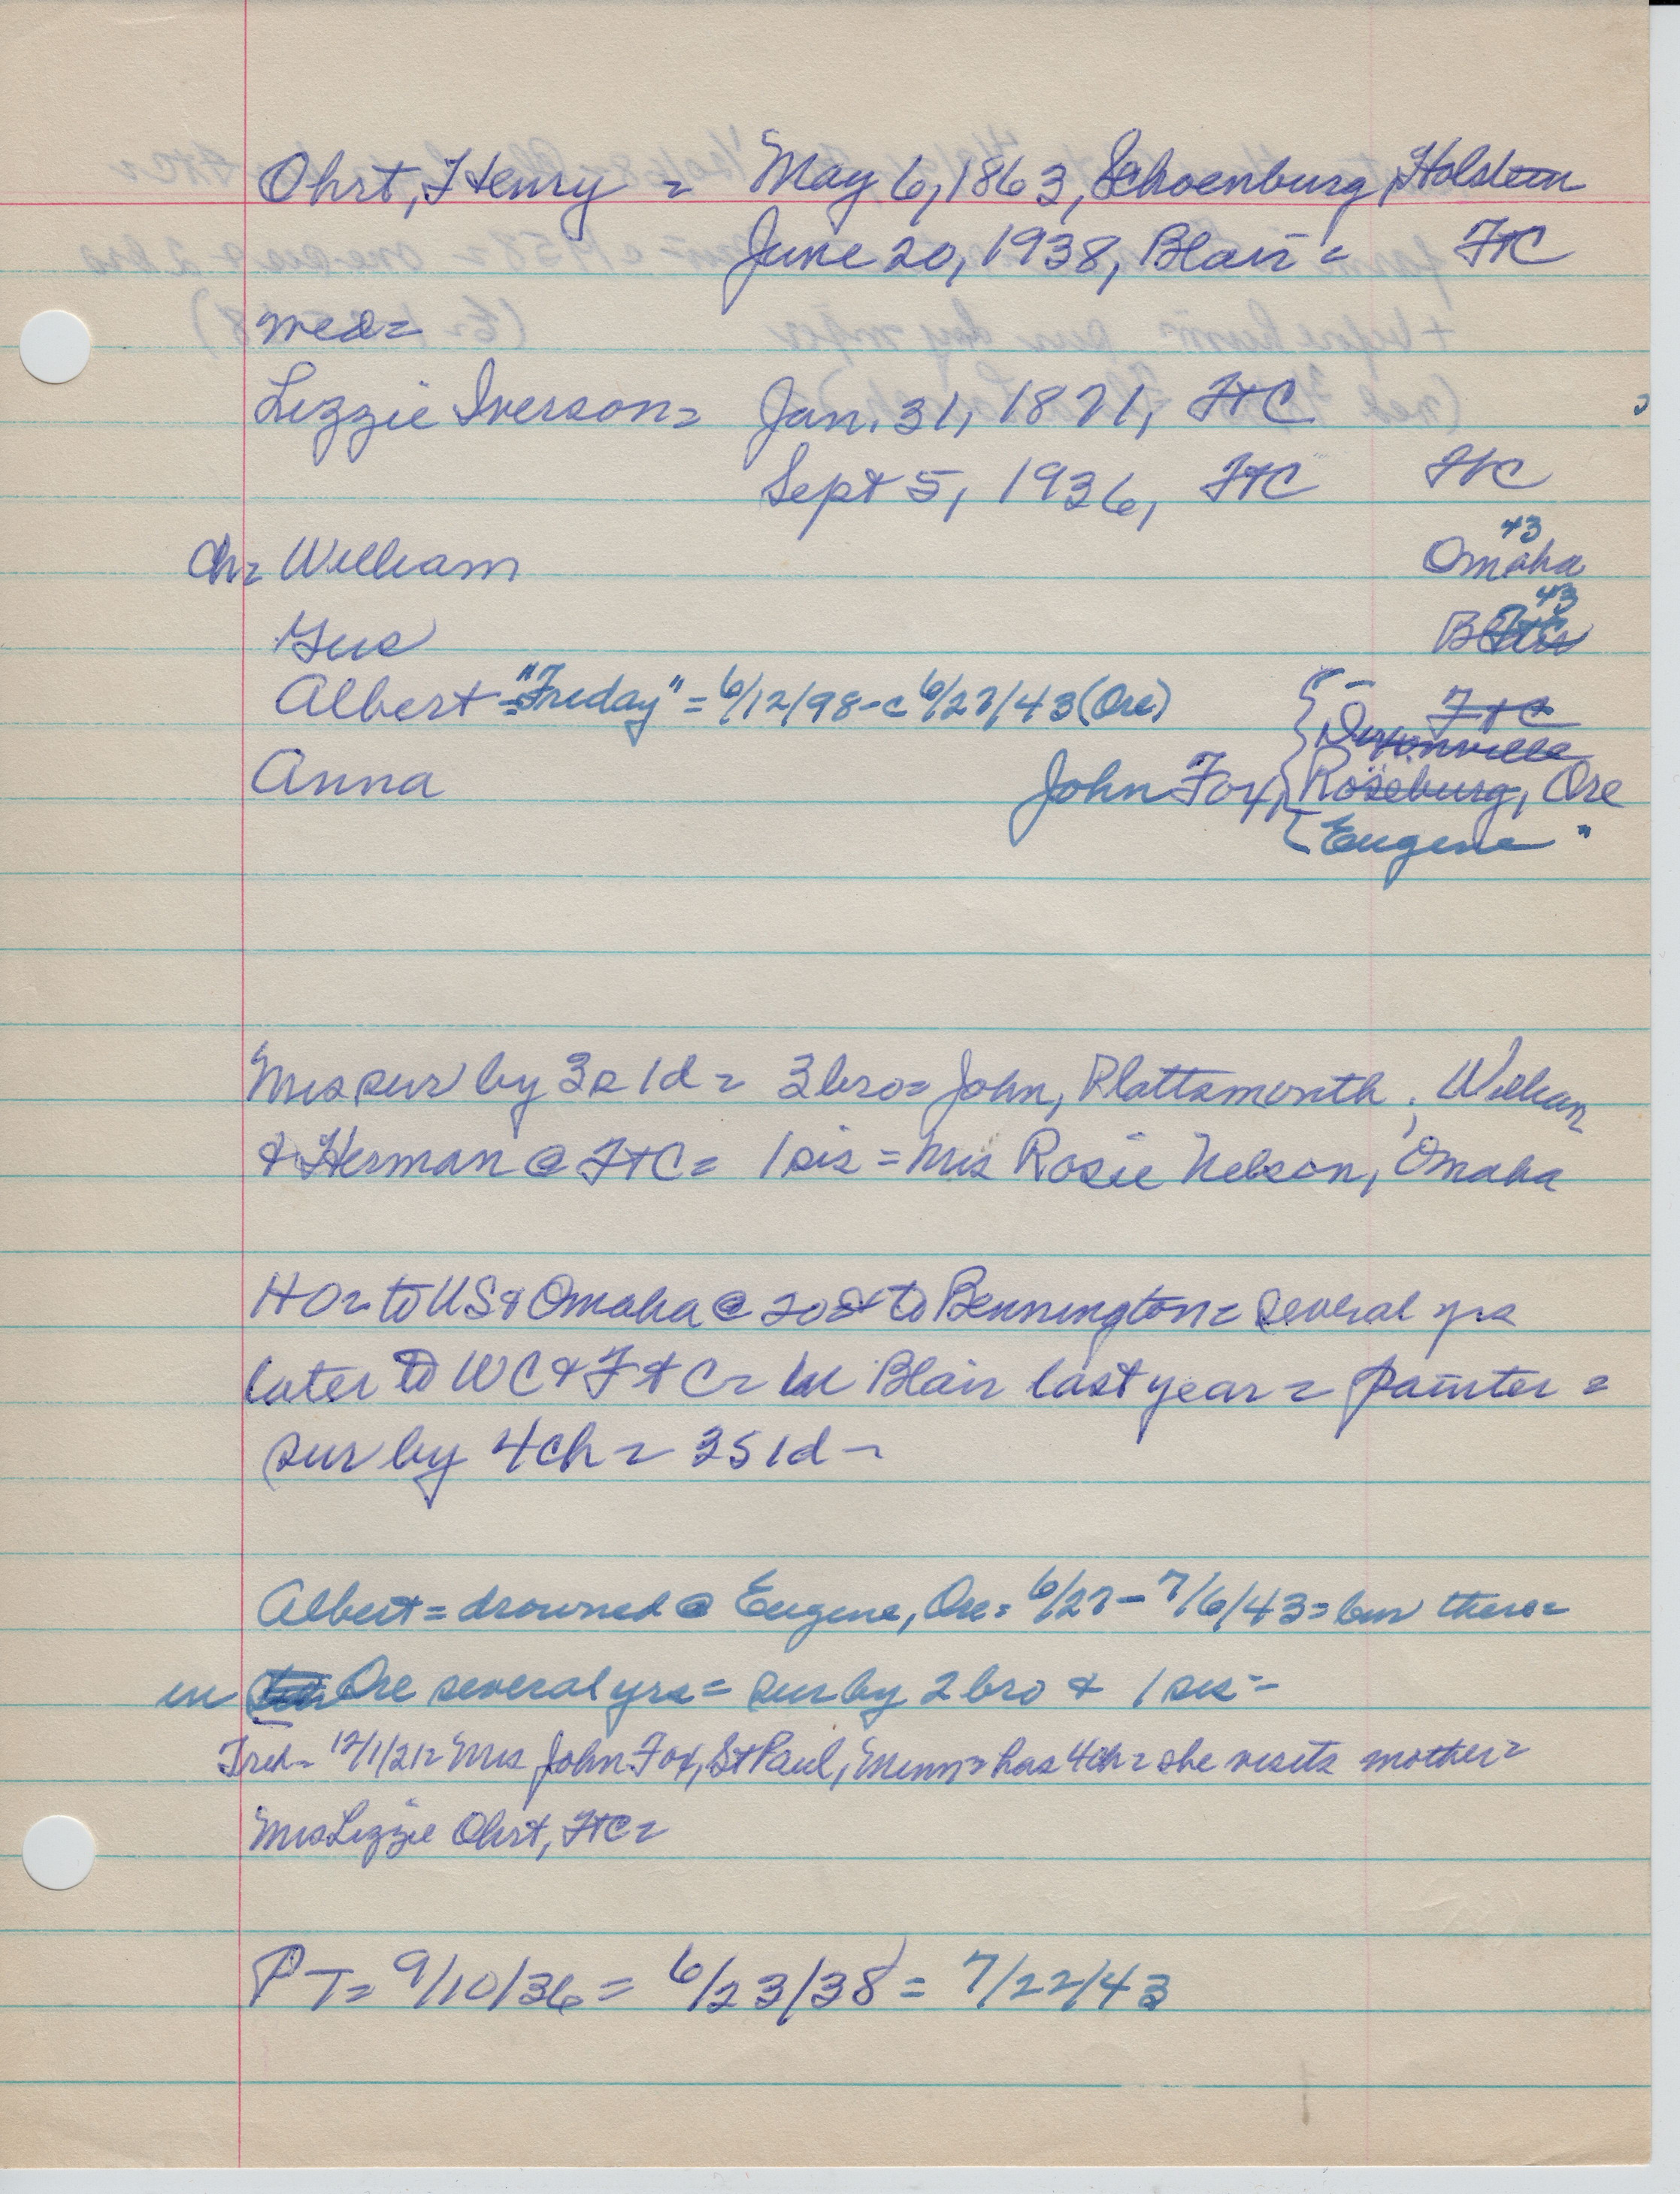 Ohrt, Henry = May 6, 1863, Schoenburg, Holstein
June 20, 1938, Blair = FtC
wed=
Lizzie Iverson= Jan. 31, 1871, FtC
Sept 5, 1936, FtC FtC
43
Ch= William Omaha
43
Gus Blair
Albert = "Friday" = 6/12/98 - c 6/27/43 (Ore) FtC
Anna John Fox, Roseburg, Ore
Eugene "
Mrs sur by 3s 1d = 3 bro= John, Plattsmouth; William
& Herman @ FtC= 1 sis = Mrs Rosie Nelson, Omaha
HO= to US & Omaha @ 20 & to Bennington= several yrs
later to WC & FtC= in Blair last year = painter =
sur by 4ch = 3S 1d -
Albert = drowned @ Eugene, Ore= 6/27 - 7/6/43= bur there=
in Ore several yrs= sur by 2 bro & 1 sis=
12/1/21= Mrs John Fox, St Paul, Minn= has 4ch= she visits mother=
Mrs Lizzie Ohrt, FtC=
PT= 9/10/36 = 6/23/38 = 7/22/43